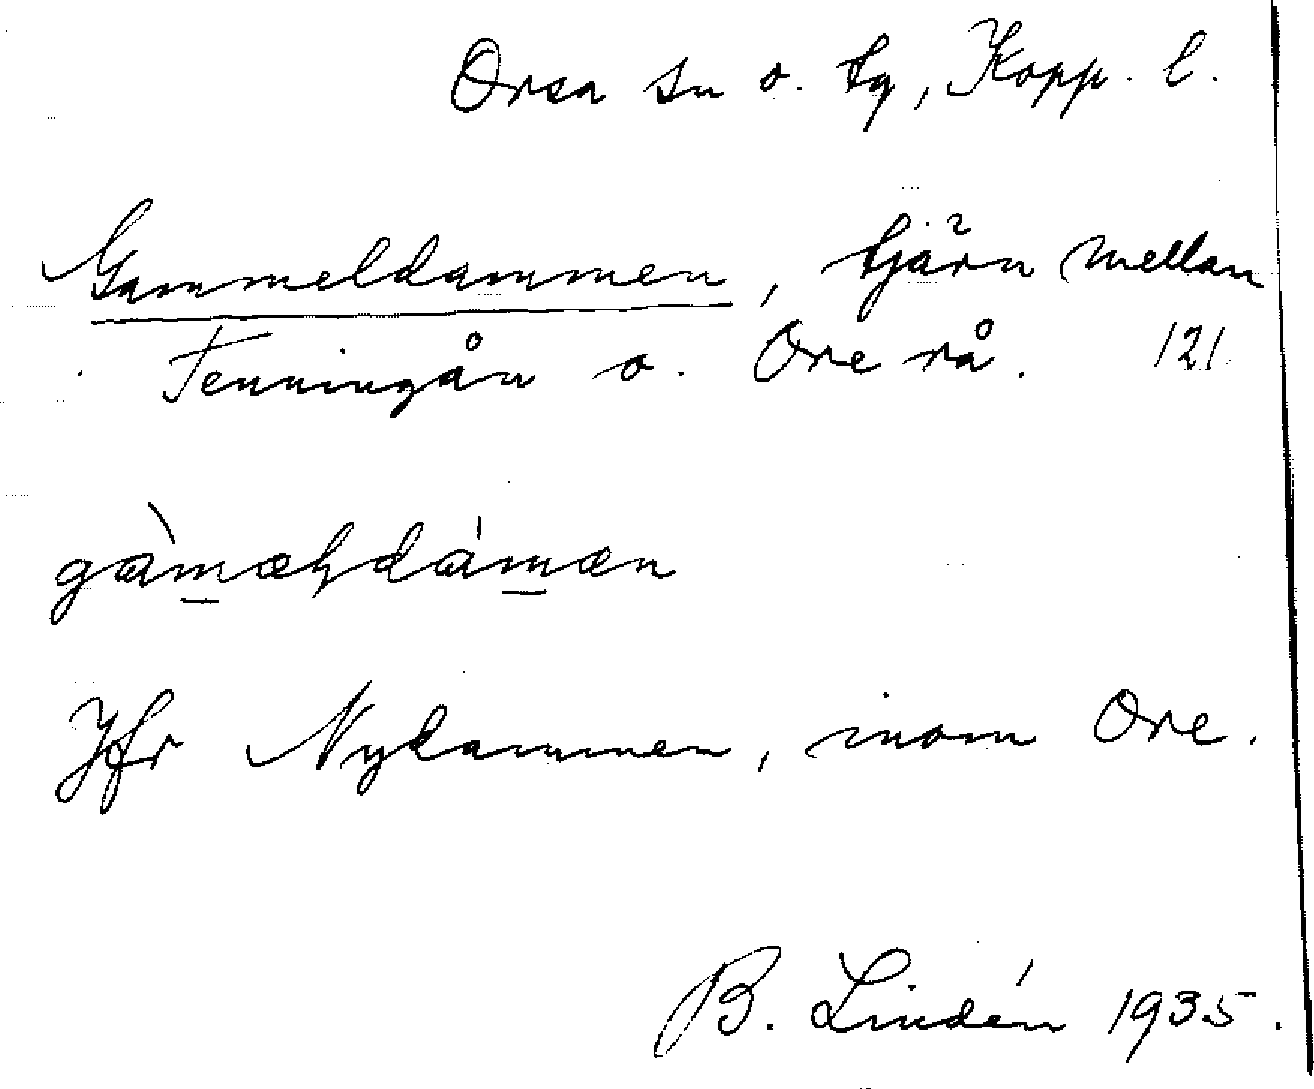 Orsa sn o. tg, Kopp. l.
Gammeldammen, tjärn mellan
Tenningån o. Ore rå. 121
gàmæɭdámæn
Jfr Nydammen, inom Ore.
B. Lindén 1935.